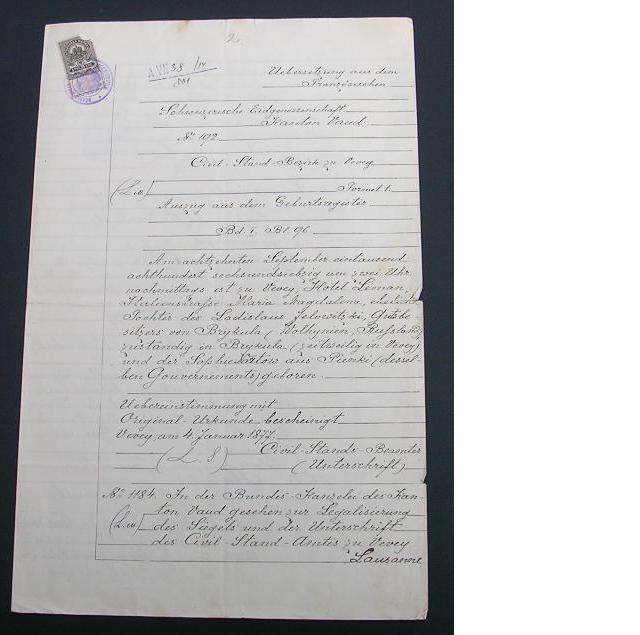 2
A VII 38/14
801
Uebersetzung aus dem
Französischen
Schweizerische Eidgenossenschaft
Kanton Vaud
No 192
Civil-Stand-Bezirk zu Vevey
Formel 1.
Auszug aus dem Geburtsregister
Bd I. Bl 96.
Am achtzehnten September eintausend
achthundert sechsundsiebzig um zwei Uhr
nachmittags ist zu Vevey, Hotel Leman,
Maria Magdalina, eheliche
Tochter des Ladislaus Jelowitzki, Gutsbe
sitzers von Brykula, (Wolhynien, Russland,
zuständig in Brykula (zeitweilig in Vevey)
und der Sophie aus Pinki (dessel-
ben Gouvernements) geboren.
Uebereinstimmung mit
Original-Urkunde bescheinigt
Vevey, am 4. Januar 1877.
Civil-Stands-Beamter
(L. S) (Unterschrift)
No 1184. In der Bundes-Kanzelei des Kan-
ton Vaud gesehen zur Legalisierung
des Siegels und der Unterschrift
des Civil-Stand-Amtes zu Vevey
Lausanne